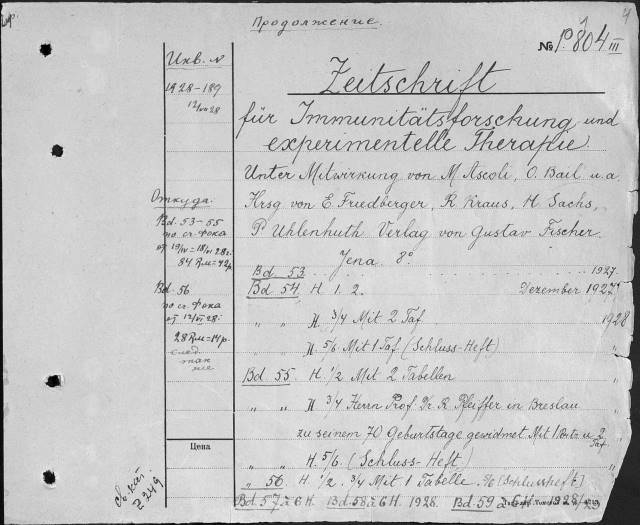 Продолженіе.
№ P 804 III
Инв. №
1928-189
12/VII 28
Zeitschrift
für Immunitätsforschung und
experimentelle Therapie.
Unter Mitwirkung von M. Ascoli, O. Bail u. a.
Hrsg von E. Friedberger, R Kraus, H Sachs,
P Uhlenhuth Verlag von Gustav Fischer
Jena 8°
Откуда.
Bd. 53-55
по сч. Фока
84 Rm = 42 р.
Bd. 56
по сч. Фока
от 12/VI 28.
28 Rm = 14 р.
Bd 53 1927.
Bd 54 H. 1. 2. Dezember 1927
" " H. 3/4 Mit 2 Taf. 1928
" " H 5/6 Mit 1 Taf (Schluss-Heft) "
Bd 55 H. 1/2 Mit 2 Tabellen "
" " H 3/4 Herrn Prof. Dr R Pfeiffer in Breslau
zu seinem 70 Geburtstage gewidmet Mit 1 Portr u 2 Taf.
" " H. 5/6 (Schluss-Heft) "
" 56 H. 1/2. 3/4 Mit 1 Tabelle. 5/6 (Schlussheft) "
Bd 57 à 6 H. Bd 58 à 6 H. 1928. Bd. 59 à 6 H. 1928/29
Цена
Св. кат.
2249